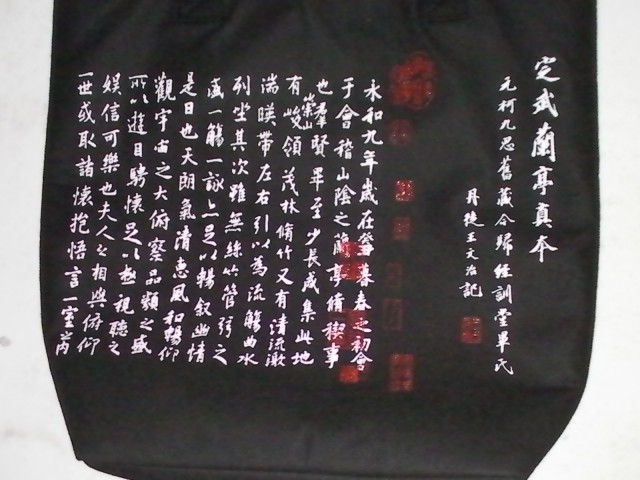 定武蘭亭真本
元柯九思舊藏今歸經訓堂畢氏
丹徒王文治記
永和九年歲在癸丑暮春之初會
于會稽山陰之蘭亭脩稧事
也羣賢畢至少長咸集此地
有崇山峻領茂林脩竹又有清流激
湍暎帶左右引以為流觴曲水
列坐其次雖無絲竹管弦之
盛一觴一詠亦足以暢敘幽情
是日也天朗氣清惠風和暢仰
觀宇宙之大俯察品類之盛
所以遊目騁懷足以極視聽之
娛信可樂也夫人之相與俯仰
一世或取諸懷抱悟言一室之内